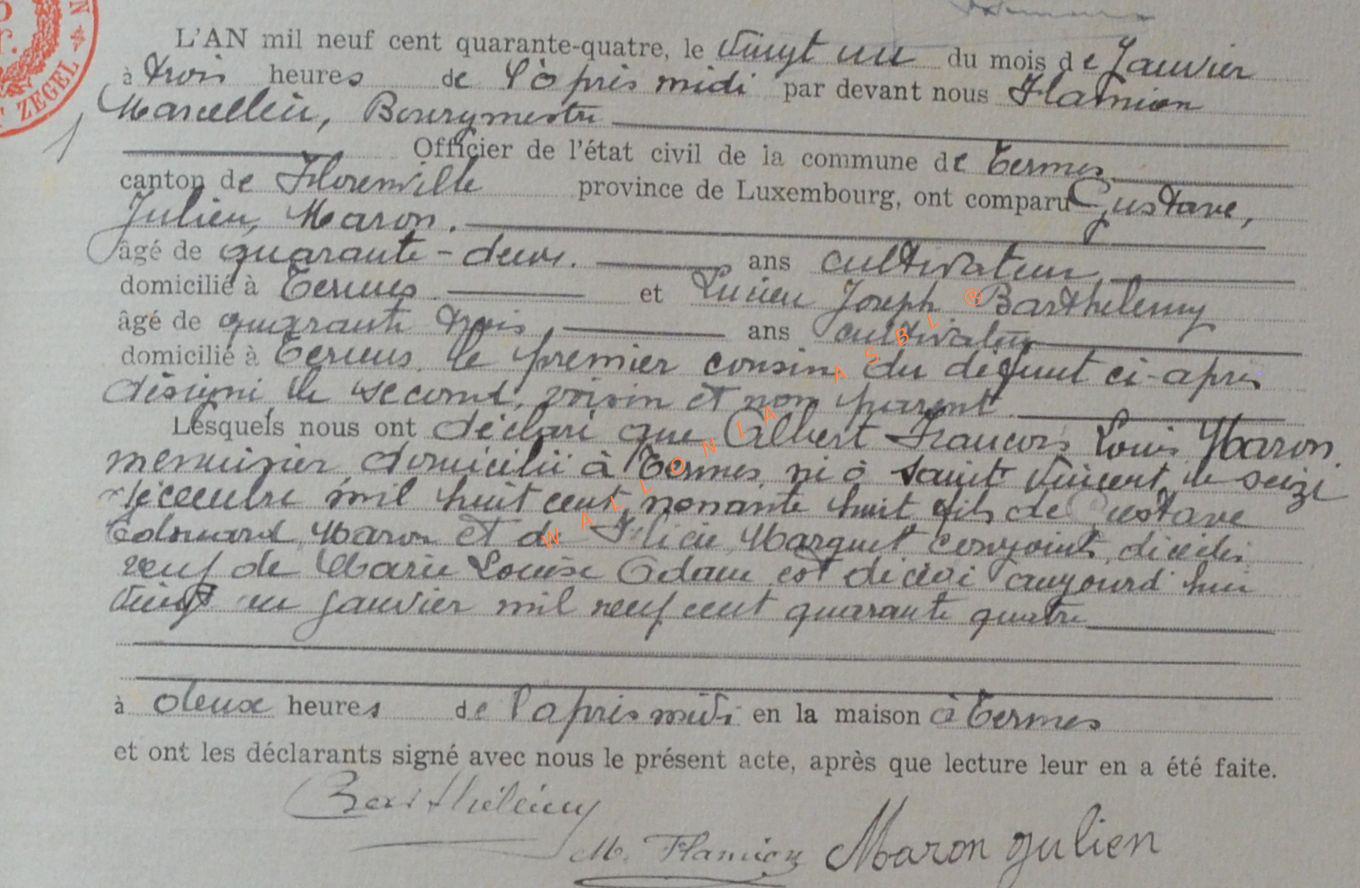 L'AN mil neuf cent quarante-quatre, le vingt un du mois de Janvier
à trois heures de l'après midi par devant nous Flamion
Marcellin, Bourgmestre
Officier de l'état civil de la commune de Termes
canton de Florenville province de Luxembourg, ont comparu Gustave,
Julien, Maron.
âgé de quarante-deux. ans cultivateur
domicilié à Termes et Lucien Joseph Barthélemy
âgé de quarante trois, ans cultivateur
domicilié à Termes, le premier cousin du défunt ci-après
désigné le second, voisin et non parent
Lesquels nous ont déclaré que Albert François Louis Maron
menuisier domicilié à Termes, né à Saint Vincent, le seize
décembre mil huit cent nonante huit fils de Gustave
Edouard Maron et de Félicie Marquet conjoints décédés
veuf de Marie Louise Adam est décédé aujourd'hui
vingt un janvier mil neuf cent quarante quatre
à deux heures de l'après midi en la maison à Termes
et ont les déclarants signé avec nous le présent acte, après que lecture leur en a été faite.
Barthélemy
M. Flamion Maron Julien
WALLONIA ASBL ®
ZEGEL